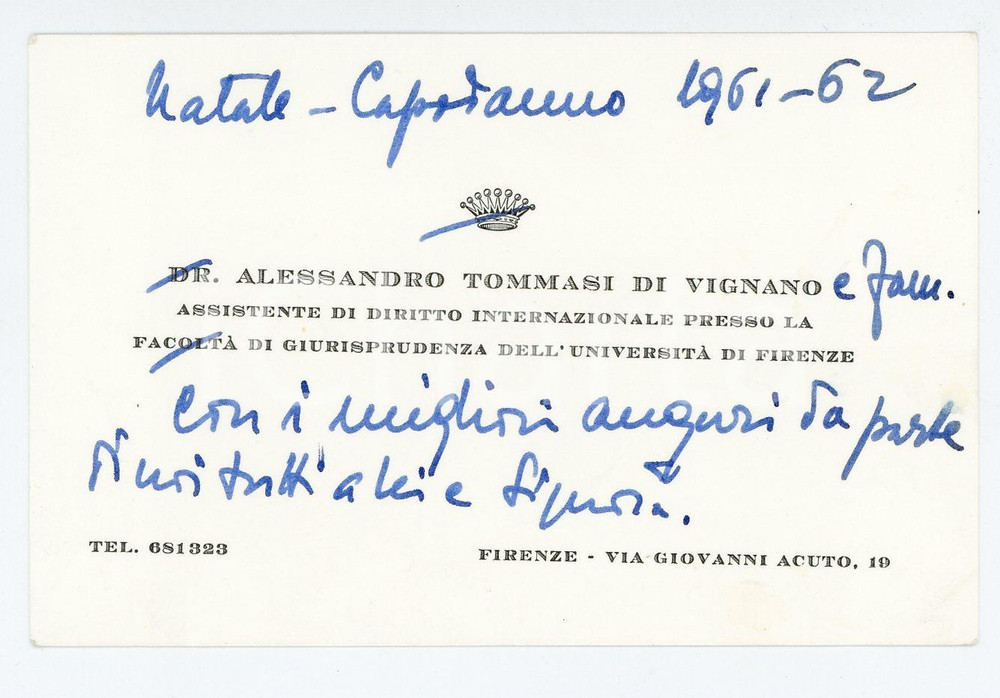 Natale - Capodanno 1961-62
DR. ALESSANDRO TOMMASI DI VIGNANO e fam.
ASSISTENTE DI DIRITTO INTERNAZIONALE PRESSO LA
FACOLTÀ DI GIURISPRUDENZA DELL'UNIVERSITÀ DI FIRENZE
con i migliori auguri da parte
di noi tutti a lei e Signora.
TEL. 681323
FIRENZE - VIA GIOVANNI ACUTO, 19